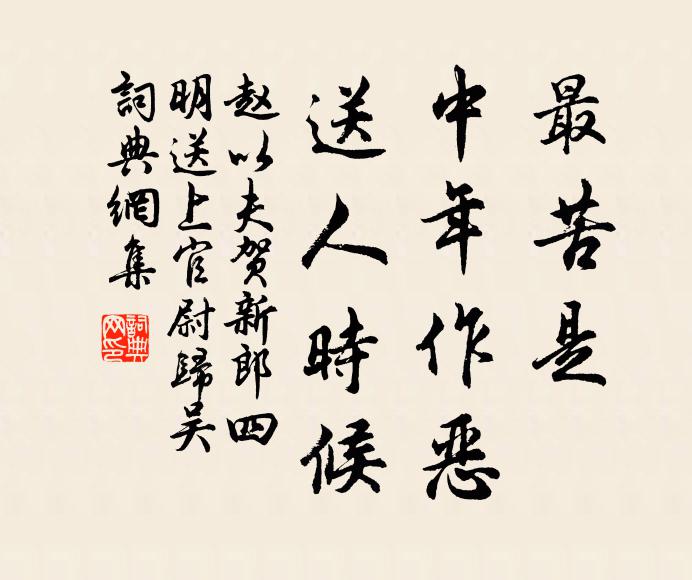 最苦是
中年作恶
送人時候
赵以夫贺新郎四
明送上官尉歸吴
詞典網集
詞典
网印